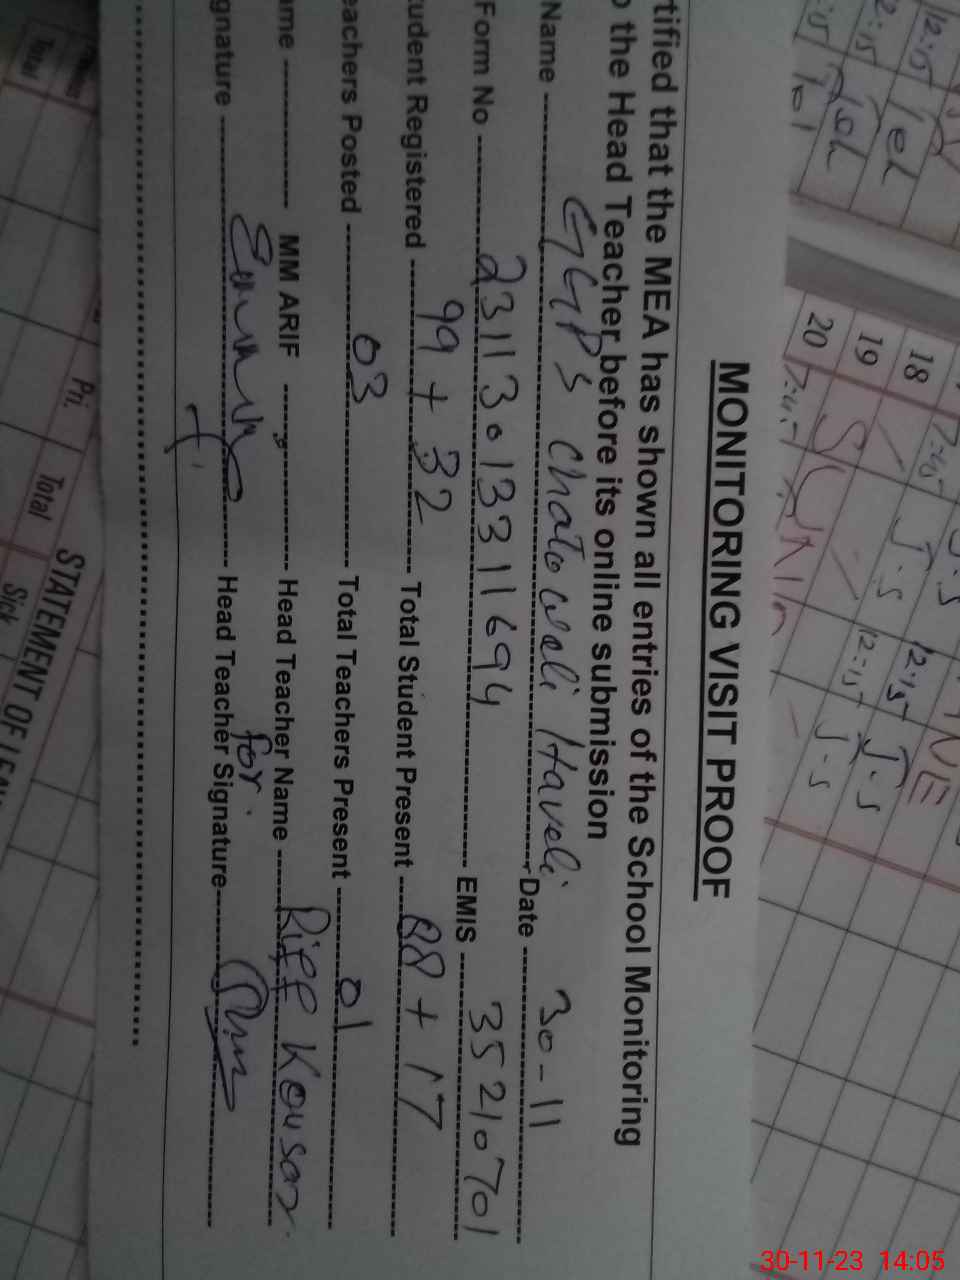 MONITORING VISIT PROOF
tified that the MEA has shown all entries of the School Monitoring
o the Head Teacher before its online submission
Name GGPS Chato Wali Haveli Date 30-11
Form No 23113013311694 EMIS 35210701
tudent Registered 99 + 32 Total Student Present 88 + 17
eachers Posted 03 Total Teachers Present 01
ame MM ARIF Head Teacher Name Riff Kousar
gnature Head Teacher Signature for
18 7:45 J.S 12:15 J.S
19 12:15 J.S
20
12:15
Pri. Total
STATEMENT OF LEAV
Sick
Total
30-11-23 14:05